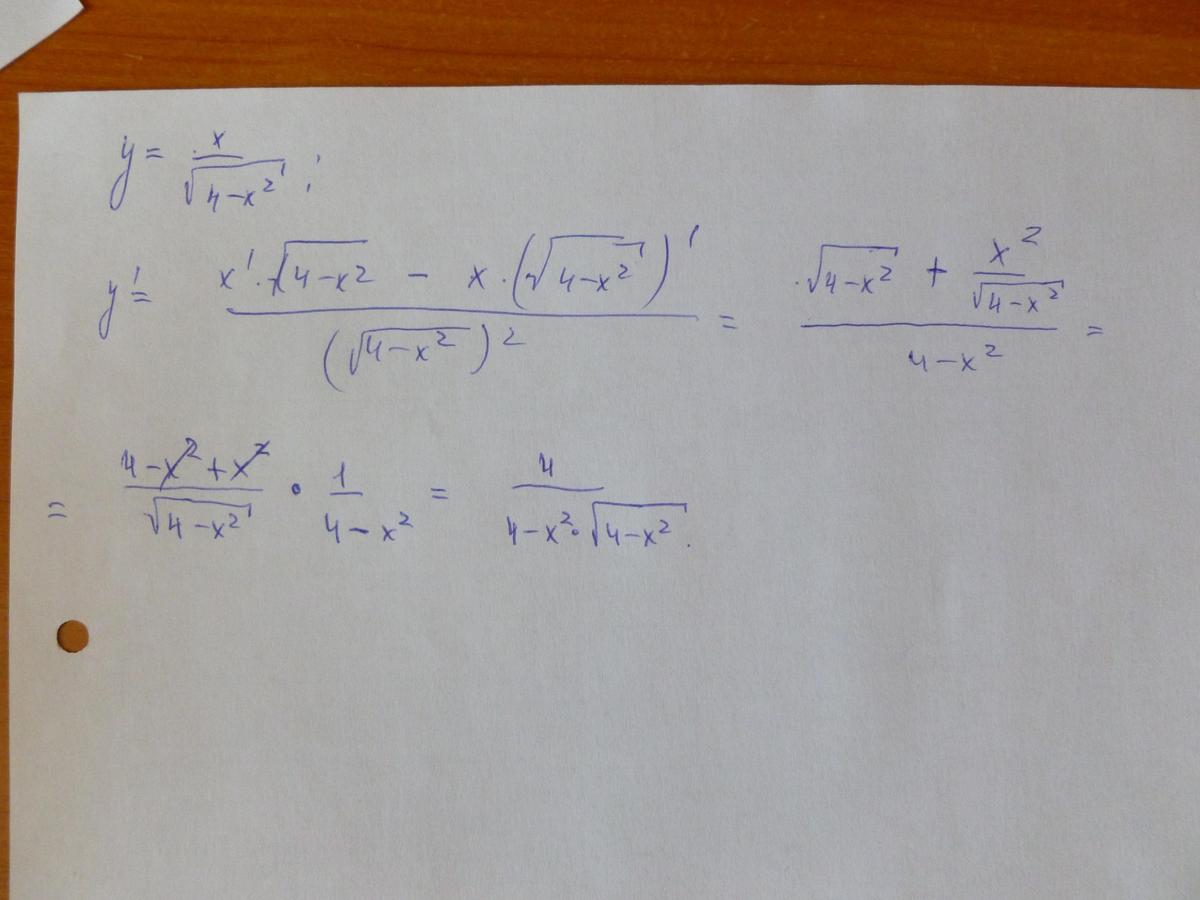 y = x/√(4-x²) ;
y' = (x'·√(4-x²) - x·(√(4-x²))')/(√(4-x²))² = (√(4-x²) + x²/√(4-x²))/(4-x²) =
= (4-x²+x²)/√(4-x²) · 1/(4-x²) = 4/(4-x²·√(4-x²)).